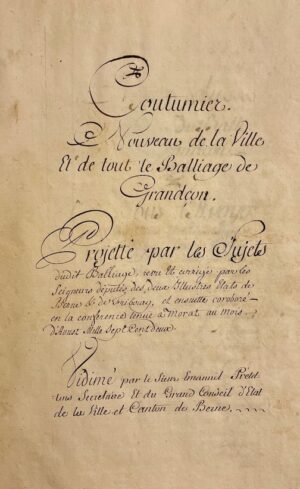 Coutumier.
Nouveau de la Ville
Et de tout le Balliage de
Grandçon.
Projetté par les Sujets
dudit Balliage, revu et corrigé par les
Seigneurs députés des deux Illustres Etats de
Berne & de Fribourg, et ensuitte corroboré
en la conférence tenue à Morat au mois
d'Aoust Mille Sept Cent deux
Vidimé par le Sieur Emanuel
Secretaire Et du Grand Conseil d'Etat
de la Ville et Canton de Berne.